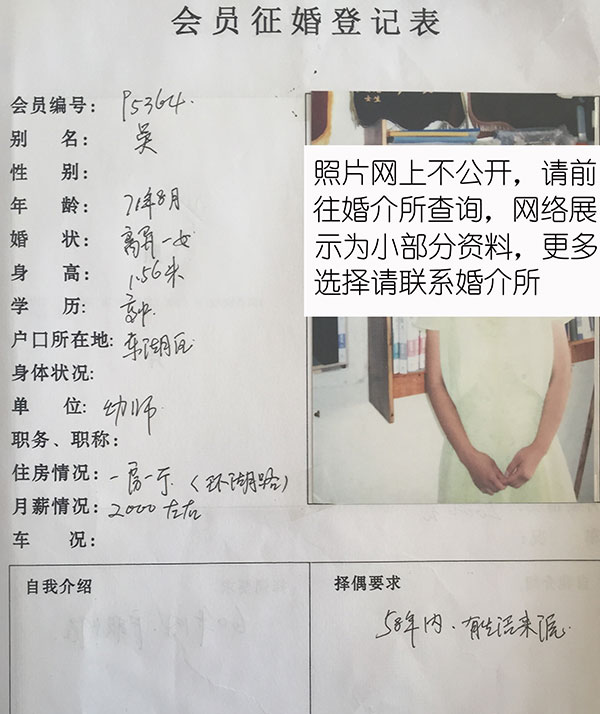 会员征婚登记表
会员编号: P5364.
别 名: 吴
性 别:
年 龄: 71年8月
婚 状: 离异一女
身 高: 1.56米
学 历: 高中
户口所在地: 东湖区
身体状况:
单 位: 幼师
职务、职称:
住房情况: 一房一厅 (环湖路)
月薪情况: 2000左右
车 况:
照片网上不公开，请前
往婚介所查询，网络展
示为小部分资料，更多
选择请联系婚介所
自我介绍
择偶要求
58年内、有生活来源.